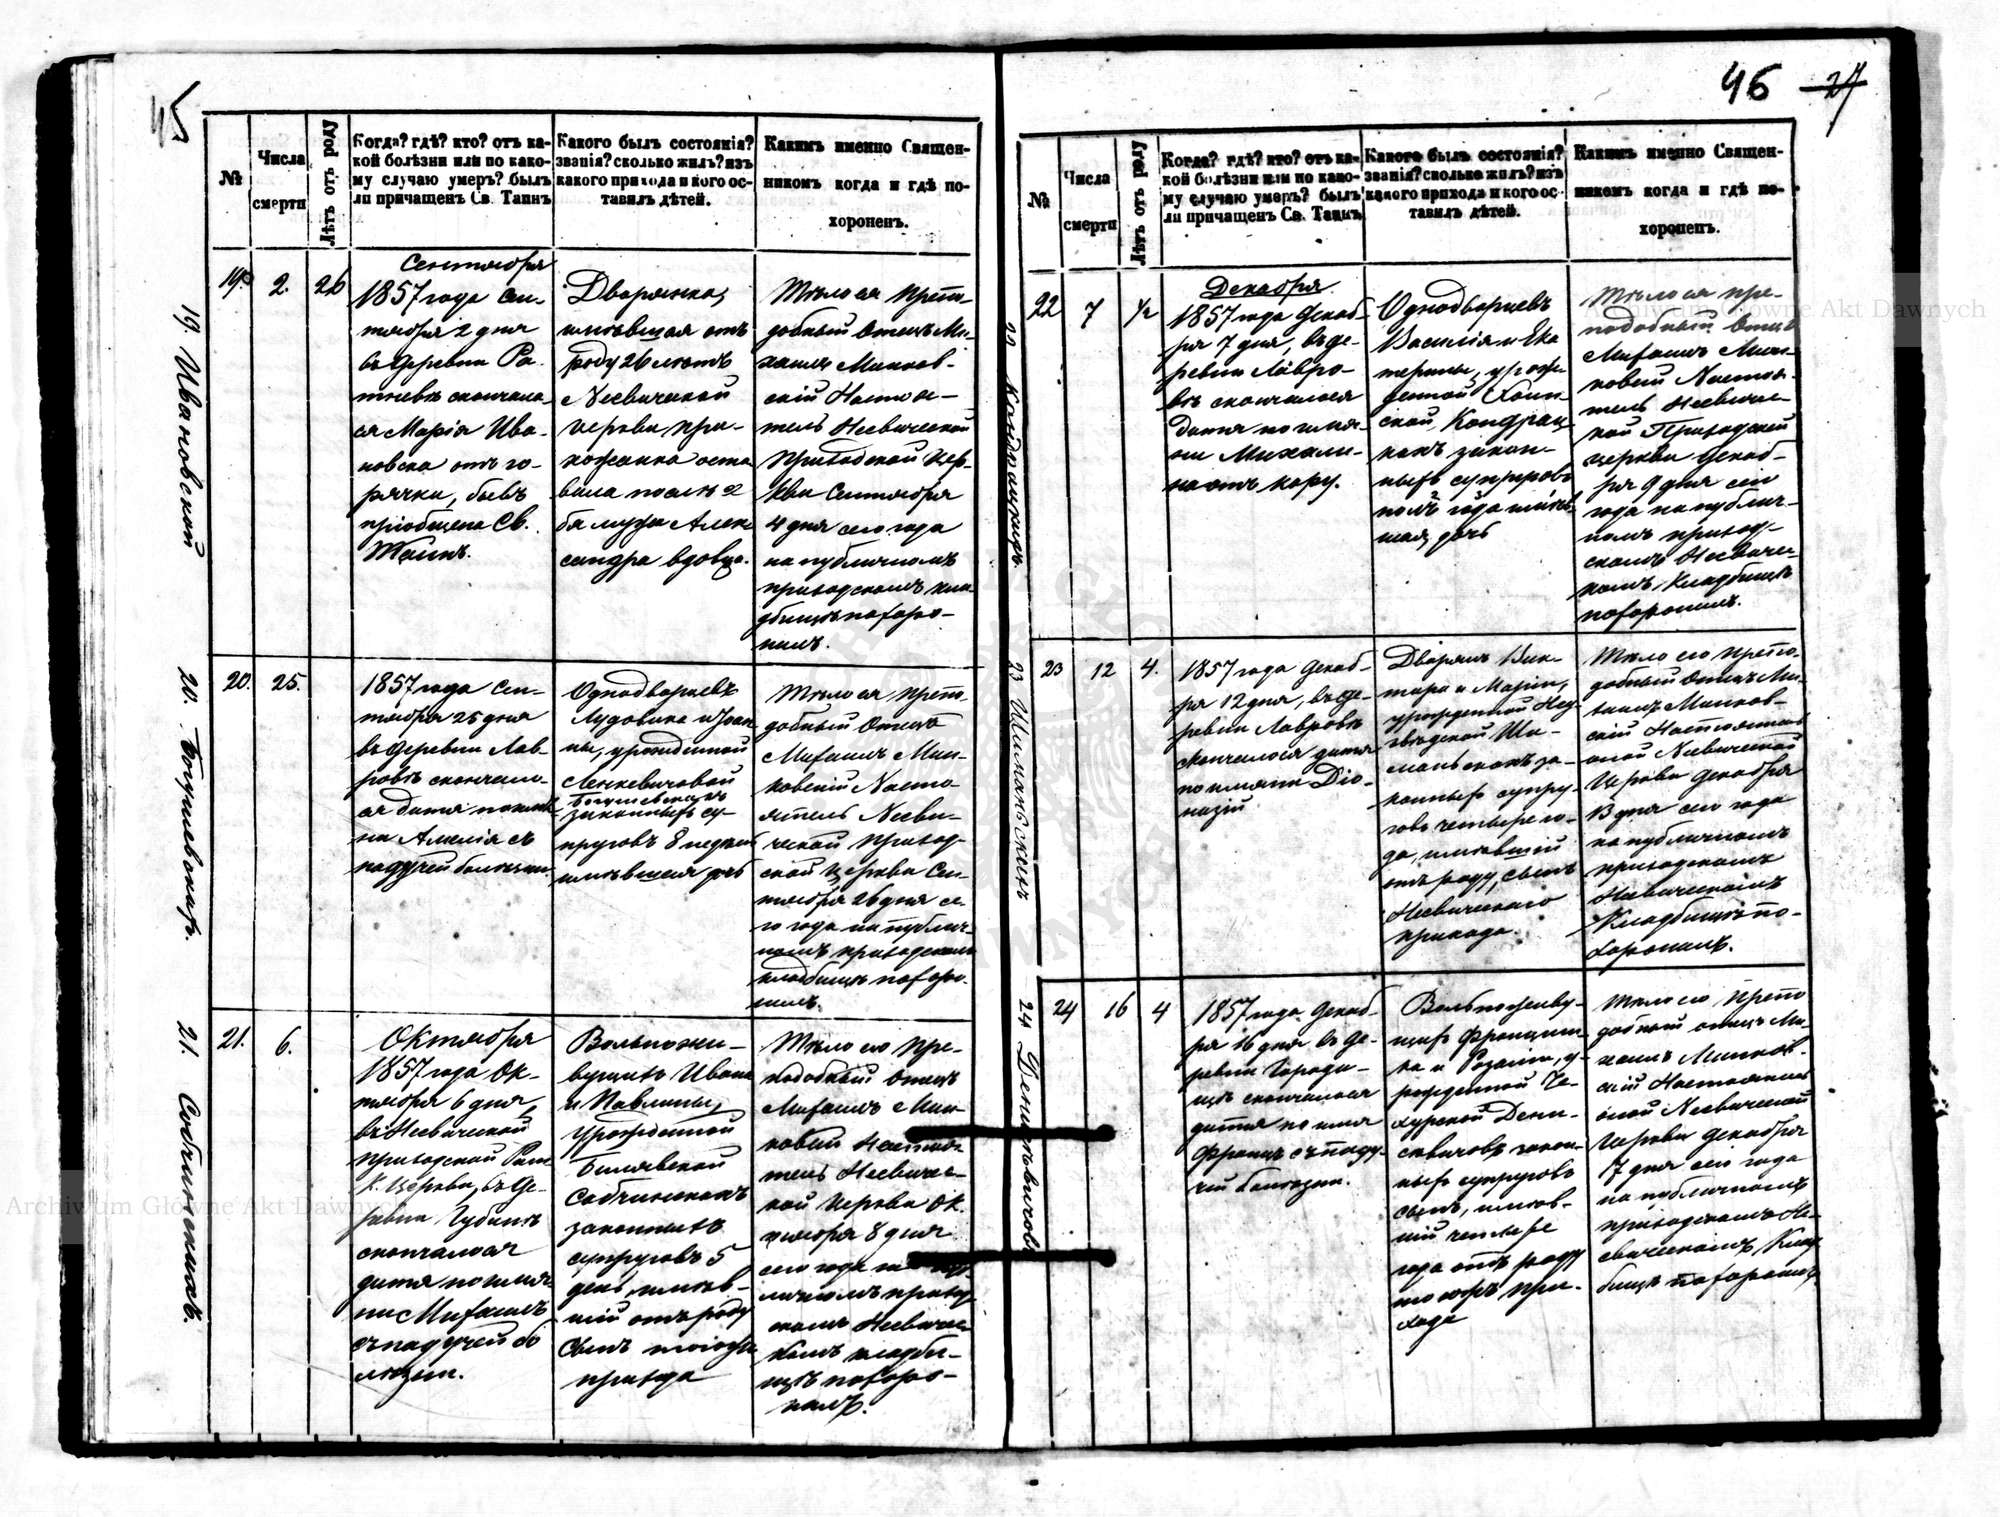 45
№
Числа
смерти
Лѣтъ отъ роду
Когда? гдѣ? кто? отъ ка-
кой болѣзни или по како-
му случаю умеръ? былъ
ли причащенъ Св. Таинъ
Какого былъ состоянія?
званія? сколько жилъ? изъ
какого прихода и кого ос-
тавилъ дѣтей.
Какимъ именно Священ-
никомъ когда и гдѣ по-
хороненъ.
19. Ивановской
19.
2.
26
Сентября
1857 года Сен-
тября 2 дня
въ деревни Ра-
тневѣ скончала-
ся Марія Ива-
новска отъ го-
рячки, бывъ
пріобщена Св.
Таинъ.
Дворянка,
имѣвшая отъ
роду 26 лѣтъ
Несвической
церкви при-
хожанка оста
вила послѣ се
бя мужа Алек
сандра вдовца.
Тѣло ея Препо-
добный Отецъ Ми-
хаилъ Минков-
скій Настоя-
тель Несвической
Приходской Цер-
кви Сентября
4 дня сего года
на публичномъ
приходскомъ кла
дбищѣ похоро-
нилъ.
20. Богушевскихъ.
20.
25.
1857 года Сен-
тября 25 дня
въ деревни Лав-
ровѣ скончала-
ся дитя по имѣ-
ни Амелія съ
падучей болѣзни.
Однодворцевъ
Лудовика и Іоан
ны, урожденной
Ленкевичовой
Богушевскихъ
законныхъ су-
пруговъ 8 недѣль
имѣвшая дочь
Тѣло ея Препо-
добный Отецъ
Михаилъ Мин-
ковскій Насто-
ятель Несви-
ческой Приход-
ской Церкви Сен-
тября 26 дня се-
го года на публич-
номъ приходскомъ
кладбищѣ похоро-
нилъ.
21. Собчинскихъ.
21.
6.
Октября
1857 года Ок-
тября 6 дня,
въ Несвической
приходской Рим
К. Церкви, въ де-
ревни Губинѣ
скончалося
дитя по имя-
ни Михаилъ
съ падучей бо
лѣзни.
Вольножи-
вущихъ Ивана
и Павлины,
Урожденной
Билявской
Собчинскихъ
законныхъ
супруговъ 5
день имѣв-
шій отъ роду
сынъ того же
прихода
Тѣло его Пре-
подобный Отецъ
Михаилъ Мин-
ковскій Настоя-
тель Несвичес-
кой Церкви Ок
тября 8 дня
сего года на пуб-
личномъ приход
скомъ Несвичес-
комъ кладби-
щѣ похоро-
нилъ.
46 27
№
Числа
смерти
Лѣтъ отъ роду
Когда? гдѣ? кто? отъ ка-
кой болѣзни или по како-
му случаю умеръ? былъ
ли причащенъ Св. Таинъ
Какого былъ состоянія?
званія? сколько жилъ? изъ
какого прихода и кого ос-
тавилъ дѣтей.
Какимъ именно Священ-
никомъ когда и гдѣ по-
хороненъ.
22
7
½
Декабря
1857 года Декаб-
ря 7 дня, въ де-
ревни Лавро-
вѣ скончалося
дитя по имя-
ни Михали-
на отъ кору.
Однодворцевъ
Василія и Ека
терины, урож
денной
Кондрац
кихъ закон-
ныхъ супруговъ
года имѣв-
шая, дочь
Тѣло ея Пре-
подобный Отецъ
Михаилъ Мин-
ковскій Настоя-
тель Несвичес-
кой Приходской
церкви Декаб-
ря 9 дня сего
года на публич-
номъ приход-
скомъ Несвичес-
комъ, Кладбищѣ
похоронилъ.
23 Шиманьскихъ
23
12
4.
1857 года Декаб-
ря 12 дня, въ де-
ревни Лавровѣ
скончалося дитя
по имяни Діо-
назій
Дворянъ Вик-
тора и Маріи,
урожденной
Ши-
маньскихъ за-
конныхъ супру-
говъ четыре го-
да, имѣвшій
отъ роду, сынъ
Несвическаго
прихода.
Тѣло его Препо-
добный Отецъ Ми-
хаилъ Минков-
скій Настоятель
оной Несвической
Церкви Декабря
дня сего года
на публичномъ
приходскомъ
Несвическомъ
Кладбищѣ по-
хоронилъ.
24
24
16
4
1857 года Декаб-
ря 16 дня въ де-
ревни Городи-
щѣ скончалося
дитя по имя
Францъ съ паду-
чей болѣзни.
Вольноживу-
щихъ Франциш-
ка и Розаліи, у-
рожденной
Дени-
севичовъ закон-
ныхъ супруговъ
сынъ, имѣв-
шій четыре
года отъ роду
того жъ при-
хода
Тѣло его Препо
добный отецъ Ми-
хаилъ Минков-
скій Настоятель
оной Несвической
Церкви Декабря
17 дня сего года
на публичномъ
приходскомъ Не-
свическомъ Клад
бищѣ похоронилъ
Archiwum Główne Akt Dawnych
Archiwum Główne Akt Dawnych